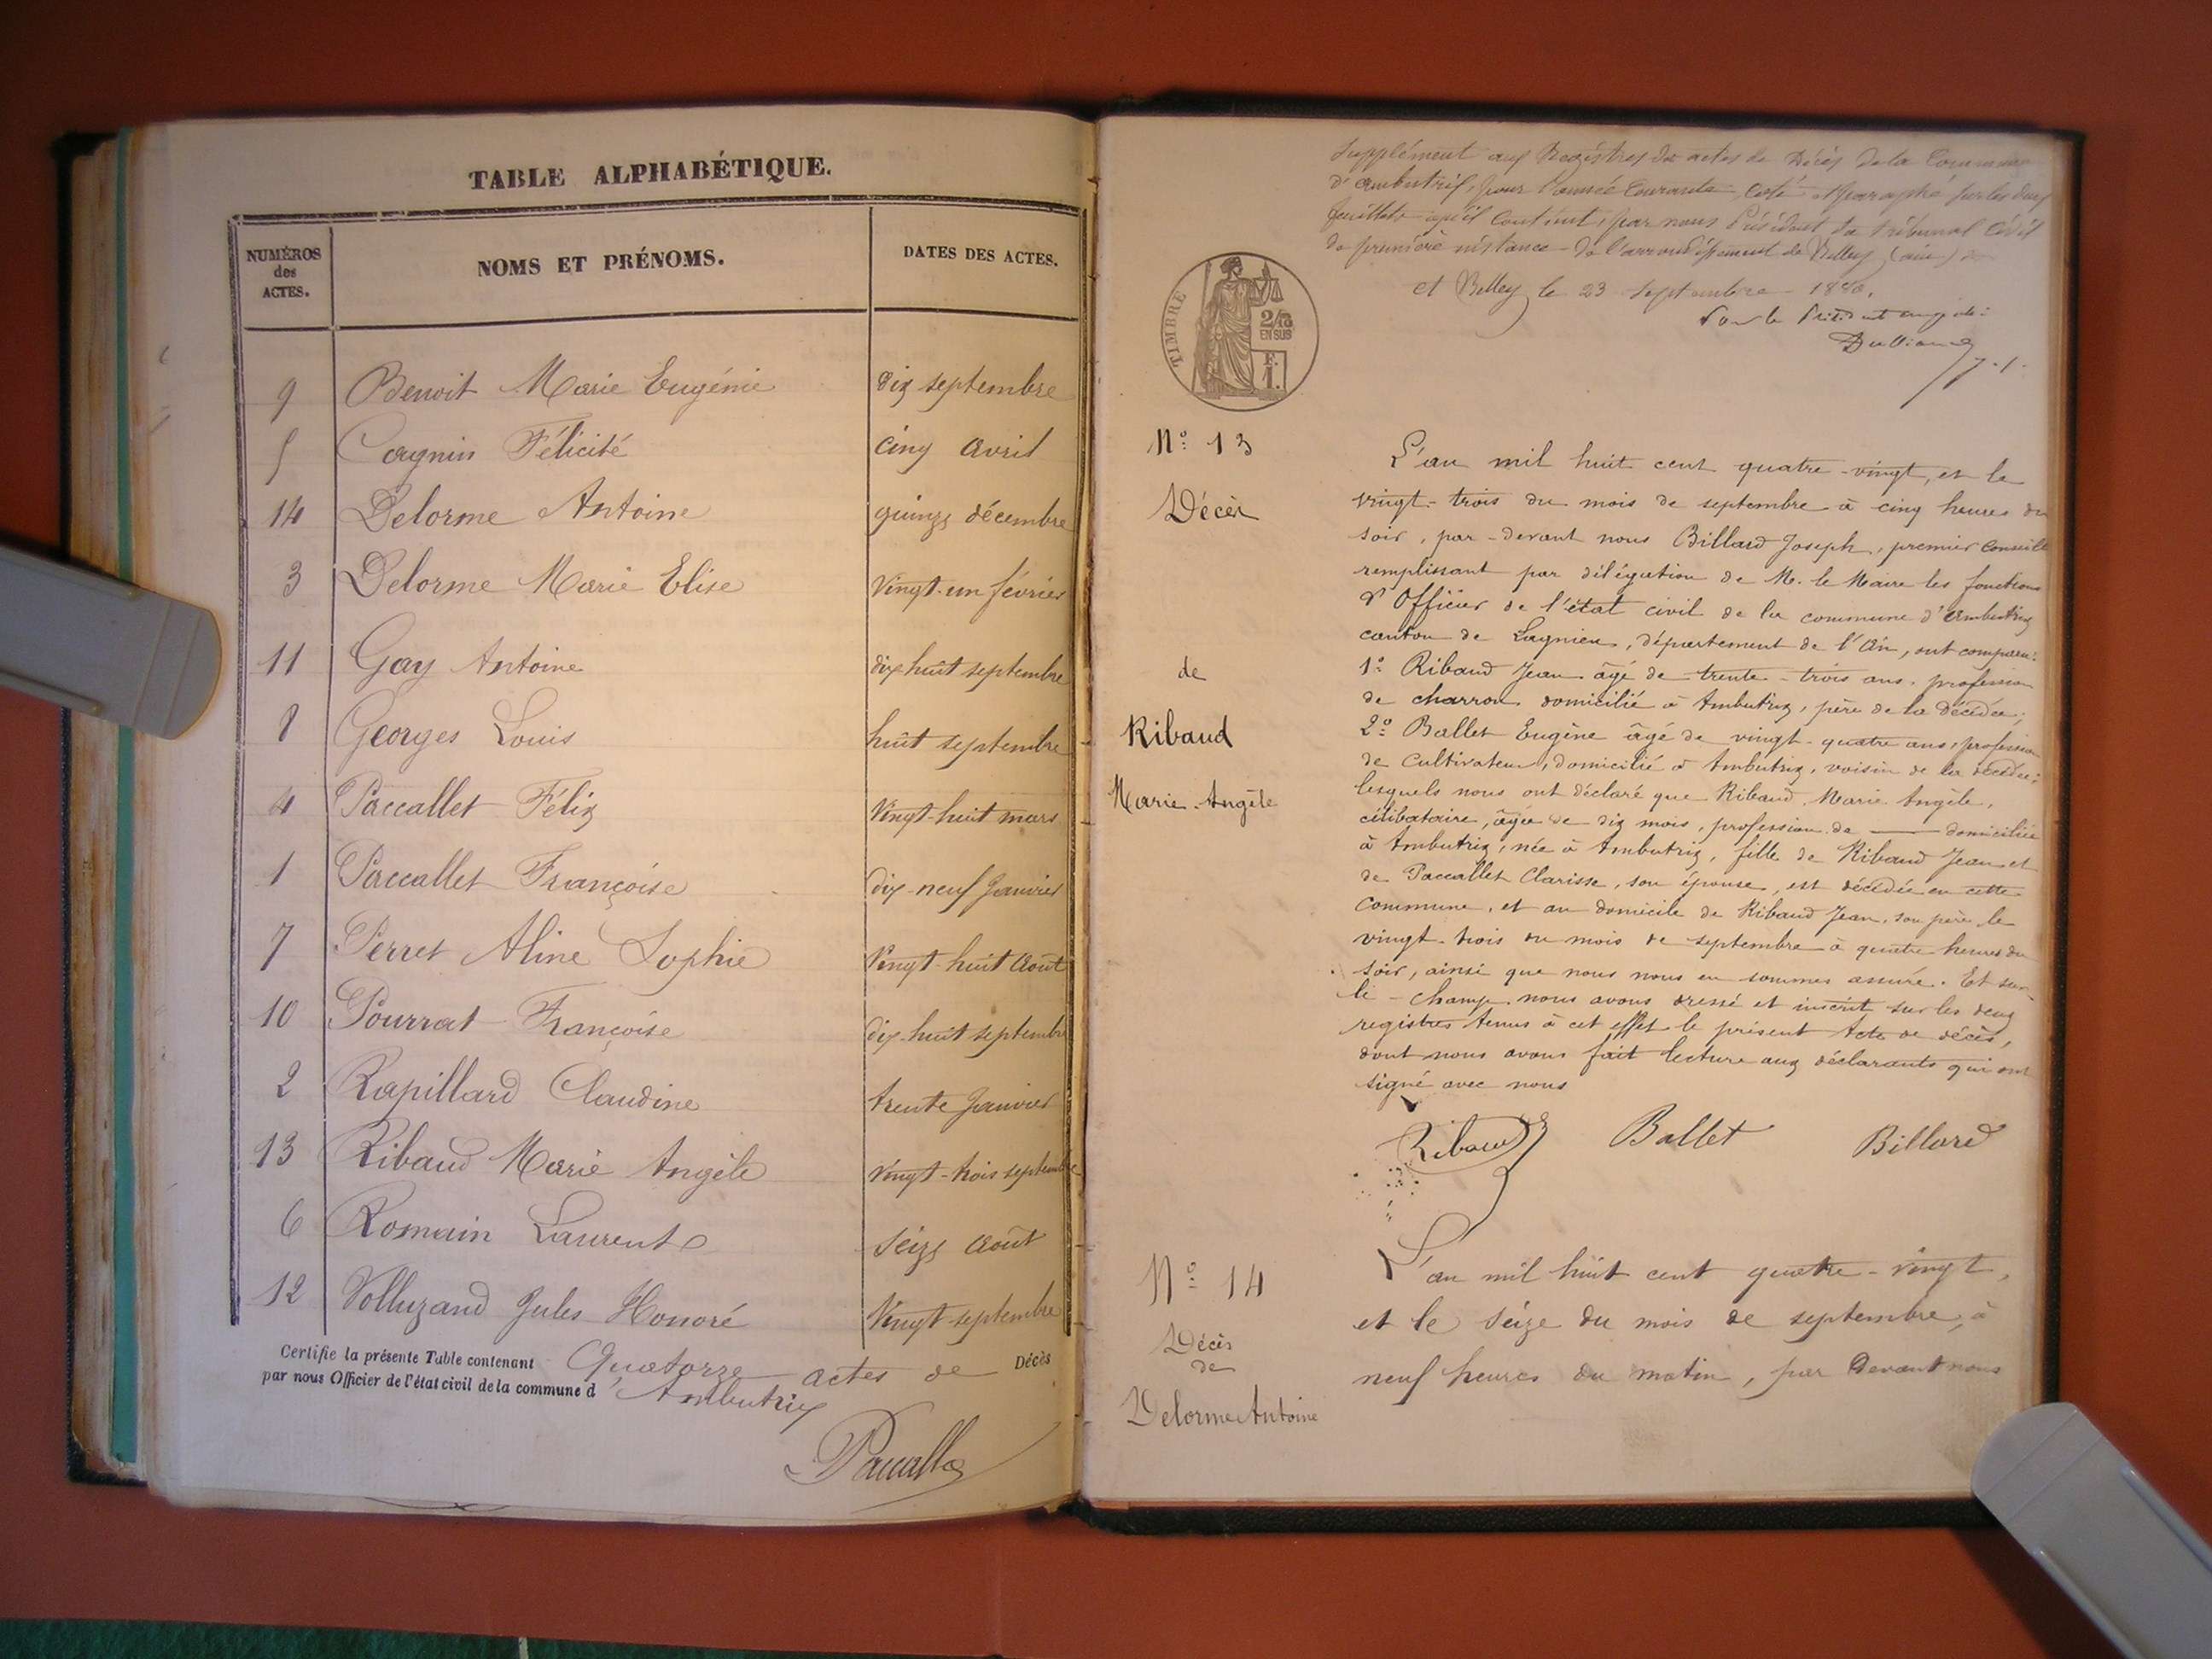 TABLE ALPHABÉTIQUE.
NUMÉROS
des
ACTES.
NOMS ET PRÉNOMS.
DATES DES ACTES.
9 Benoit Marie Eugénie dix septembre
5 Cagnin Félicité cinq avril
14 Delorme Antoine quinze décembre
3 Delorme Marie Elise vingt-un février
11 Gay Antoine dix huit septembre
8 Georges Louis huit septembre
4 Paccallet Félix vingt-huit mars
1 Paccallet Françoise dix-neuf janvier
7 Perret Aline Sophie vingt-huit août
10 Pourrat Françoise dix-huit septembre
2 Rapillard Claudine trente janvier
13 Ribaud Marie Angèle vingt-trois septembre
6 Romain Laurent seize août
12 Volluzand Jules Honoré vingt septembre
Certifie la présente Table contenant Quatorze actes de Décès
par nous Officier de l'état civil de la commune d'Ambutrix
Supplément aux Registres des actes de Décès de la Commune
d'Ambutrix, pour l'année courante, coté et paraphé sur les deux
feuillets qu'il contient, par nous Président du tribunal Civil
de première instance de l'arrondissement de Belley (ain)
et Belley le 23 septembre 1880.
Pour le Président empêché:
TIMBRE
2/10
EN SUS
F.
1.
N° 13
Décès
de
Ribaud
Marie-Angèle
L'an mil huit cent quatre-vingt, et le
vingt-trois du mois de septembre à cinq heures du
soir, par-devant nous Billard Joseph, premier Conseille
remplissant par délégation de M. le Maire les fonctions
d'Officier de l'état civil de la commune d'Ambutrix
canton de Lagnieu, département de l'Ain, ont comparu:
1° Ribaud Jean âgé de trente-trois ans, profession
de charron domicilié à Ambutrix, père de la décédée;
2° Ballet Eugène âgé de vingt-quatre ans, profession
de Cultivateur, domicilié à Ambutrix, voisin de la décédée;
lesquels nous ont déclaré que Ribaud Marie Angèle,
célibataire, âgée de dix mois, profession de — domiciliée
à Ambutrix, née à Ambutrix, fille de Ribaud Jean et
de Paccallet Clarisse, son épouse, est décédée en cette
commune, et au domicile de Ribaud Jean, son père, le
vingt-trois du mois de septembre à quatre heures du
soir, ainsi que nous nous en sommes assuré. Et sur-
le-champ nous avons dressé et inscrit sur les deux
registres tenus à cet effet le présent Acte de décès,
dont nous avons fait lecture aux déclarants qui ont
signé avec nous
Ribaud Ballet Billard
N° 14
Décès
de
Delorme Antoine
L'an mil huit cent quatre-vingt,
et le seize du mois de septembre, à
neuf heures du matin, par devant nous